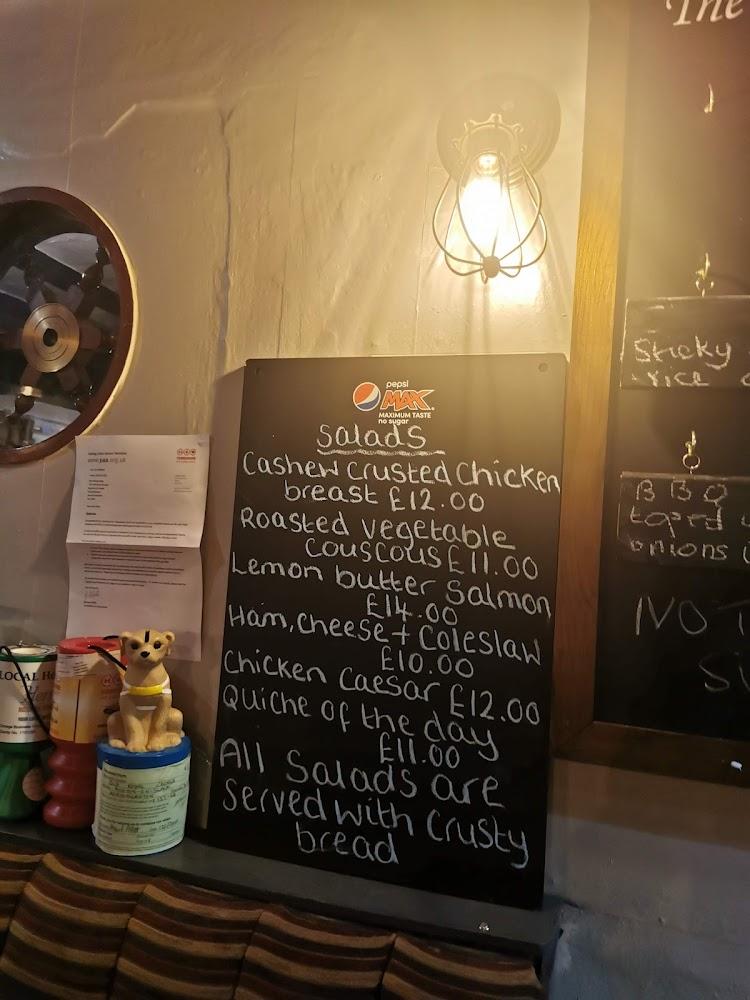 The
pepsi
MAX
MAXIMUM TASTE
no sugar
Salads
Cashew Crusted Chicken
breast £12.00
Roasted vegetable
couscous £11.00
Lemon butter Salmon
£14.00
Ham, cheese + Coleslaw
£10.00
Chicken Caesar £12.00
Quiche of the day
£11.00
All Salads are
Served with Crusty
bread
Sticky
rice
BBQ
toped
onions
NO
LOCAL